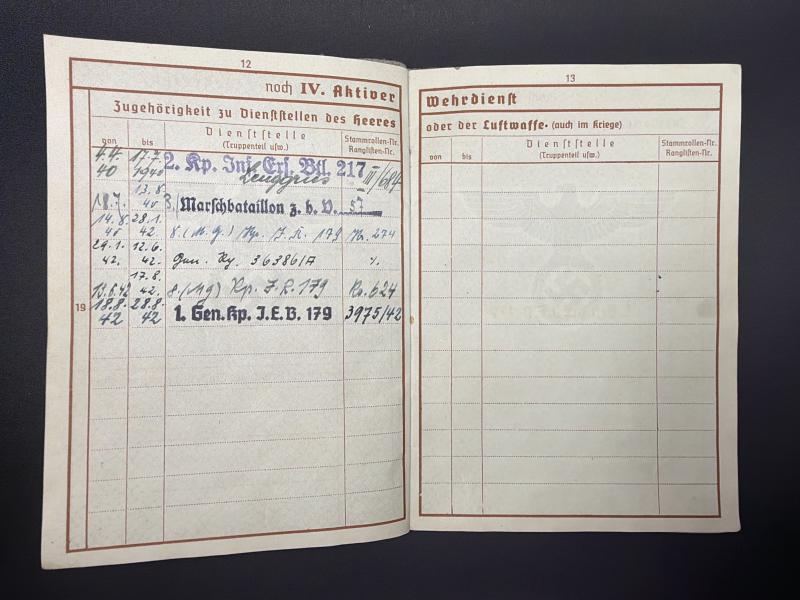 12
noch IV. Aktiver
Zugehörigkeit zu Dienststellen des Heeres
von bis Dienststelle (Truppenteil usw.) Stammrollen-Nr. Ranglisten-Nr.
4.4. 40 17.7. 1940 2. Kp. Inf. Ers. Btl. 217 Lenggries III/684
18.7. 13.8. 40 3. Marschbataillon z. b. V. 57
14.8. 40 28.1. 42. 8. (M.G.) Kp. J.R. 179 Nr. 274
29.1. 42. 12.6. 42. Gen. Kp. 36386/A ".
13.6.42 17.8. 42. 8 (Mg) Kp. J.R. 179 Nr. 624
19 18.8. 42 28.8. 42 1. Gen. Kp. J.E.B. 179 3975/42
13
Wehrdienst
oder der Luftwaffe. (auch im Kriege)
von bis Dienststelle (Truppenteil usw.) Stammrollen-Nr. Ranglisten-Nr.